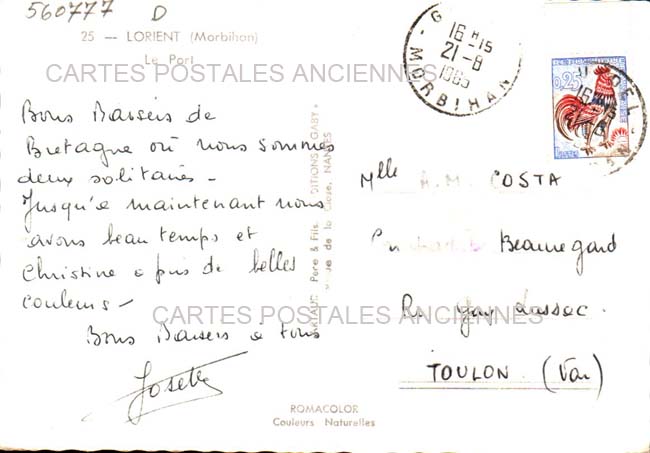 560777 D
25 — LORIENT (Morbihan)
Le Port
CARTES POSTALES ANCIENNES
Bons Baisers de
Bretagne où nous sommes
deux solitaires -
Jusqu'a maintenant nous
avons beau temps et
Christine a pris de belles
couleurs -
Bons Baisers à tous
Josette
16 H 15
21-8
1965
MORBIHAN
0,25
ARTAUD Père & Fils, EDITIONS "GABY"
de la Close, NANTES
Mlle A.M. COSTA
Beauregard
TOULON (Var)
CARTES POSTALES ANCIENNES
ROMACOLOR
Couleurs Naturelles